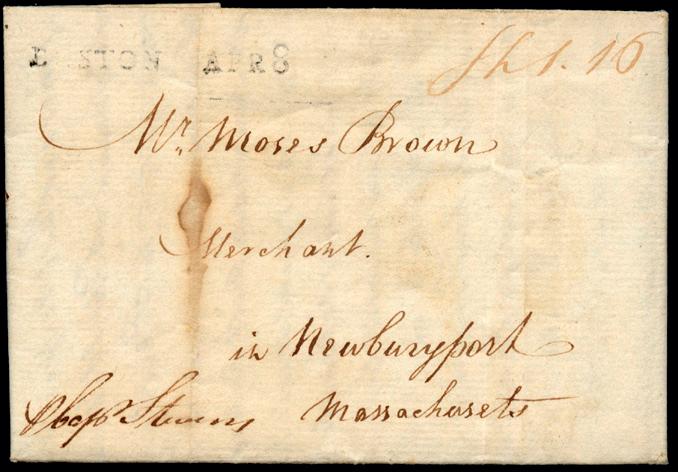 STON APR 8
Sh 1.16
Mr. Moses Brown
Merchant.
in Newburyport
Massachusets
Stevens